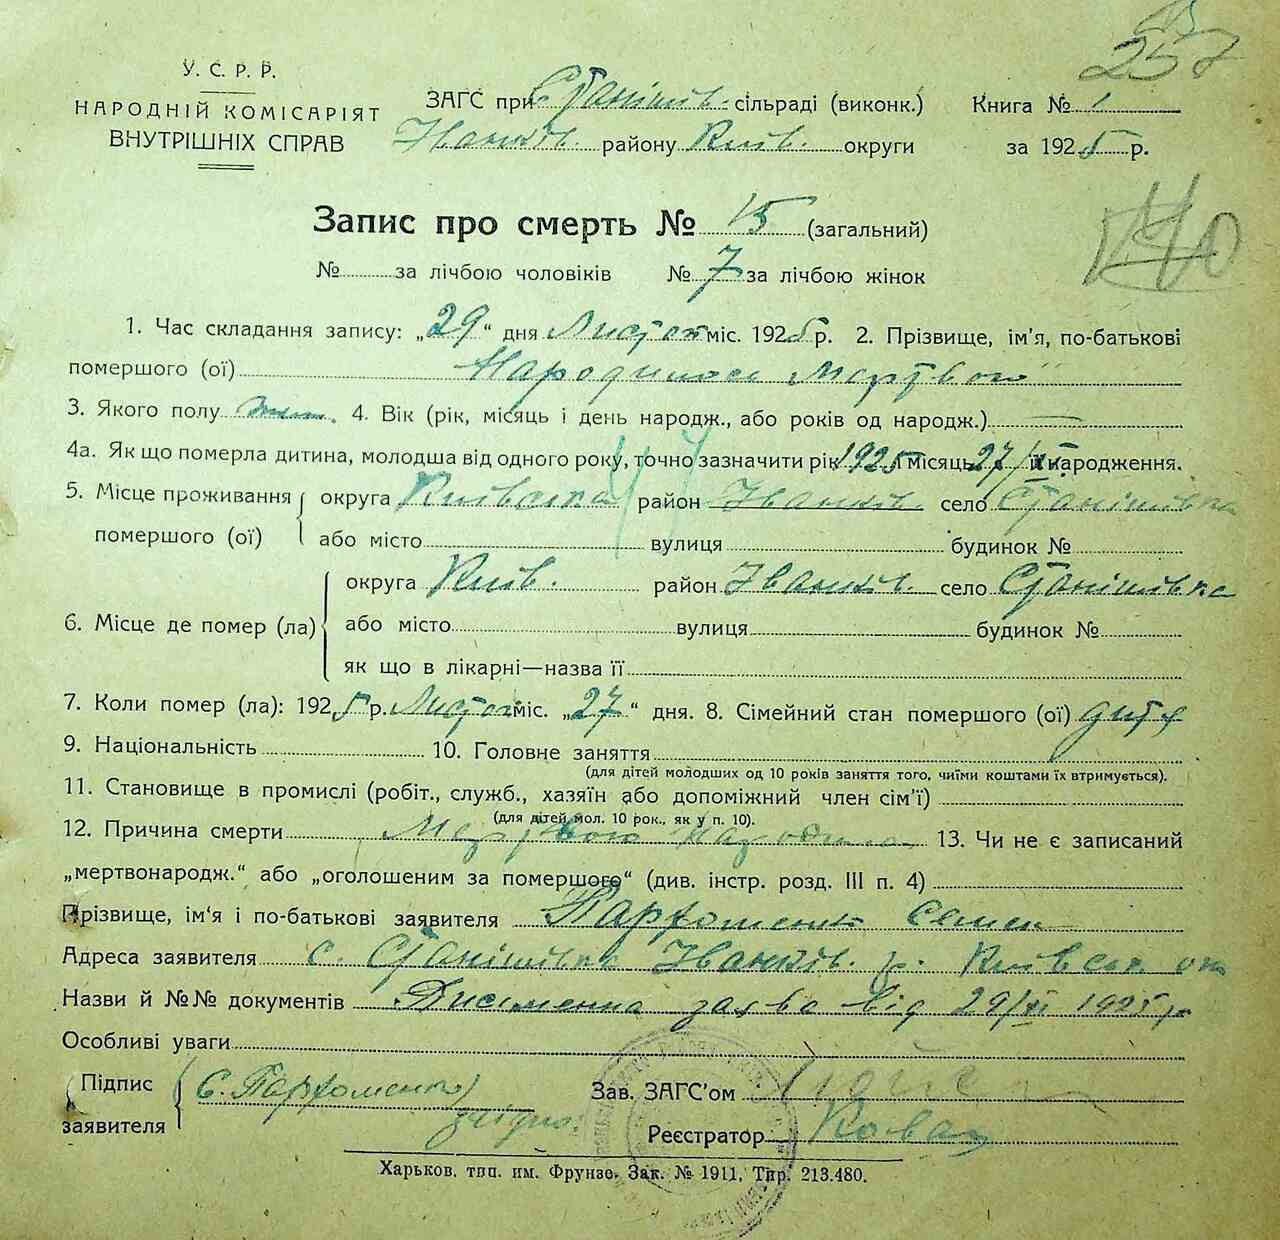 257
У. С. Р. Р.
НАРОДНІЙ КОМІСАРІЯТ
ВНУТРІШНІХ СПРАВ
ЗАГС при Станішів. сільраді (виконк.)
Іванків. району Київ. округи
Книга № 1
за 1925 р.
Запис про смерть № 15 (загальний)
№ за лічбою чоловіків № 7 за лічбою жінок
1. Час складання запису: „29“ дня Листоп міс. 1925 р. 2. Прізвище, ім'я, по-батькові
помершого (ої) Народилось Мертвого
3. Якого полу жін. 4. Вік (рік, місяць і день народж., або років од народж.) —
4а. Як що померла дитина, молодша від одного року, точно зазначити рік 1925 місяць 27/XI й народження.
5. Місце проживання помершого (ої) округа Київська район Іванків. село Станішівка
або місто вулиця будинок №
6. Місце де помер (ла) округа Київ. район Іванків. село Станішівка
або місто вулиця будинок №
як що в лікарні—назва її
7. Коли помер (ла): 1925 р. Листоп міс. „27“ дня. 8. Сімейний стан помершого (ої) дитя
9. Національність 10. Головне заняття
(для дітей молодших од 10 років заняття того, чиїми коштами їх втримується).
11. Становище в промислі (робіт., служб., хазяїн або допоміжний член сім'ї)
(для дітей мол. 10 рок., як у п. 10).
12. Причина смерти Мертвого народилось 13. Чи не є записаний
„мертвонародж.“ або „оголошеним за помершого“ (див. інстр. розд. III п. 4)
Прізвище, ім'я і по-батькові заявителя Пархоменко Семен
Адреса заявителя с. Станішівка Іванків. р. Київськ ок
Назви й №№ документів Письменна заява від 29/XI 1925 р.
Особливі уваги
Підпис заявителя С. Пархоменко
згідно:
Зав. ЗАГС'ом
Реєстратор Ковал
Харьков, тип. им. Фрунзе. Зак. № 1911. Тир. 213.480.